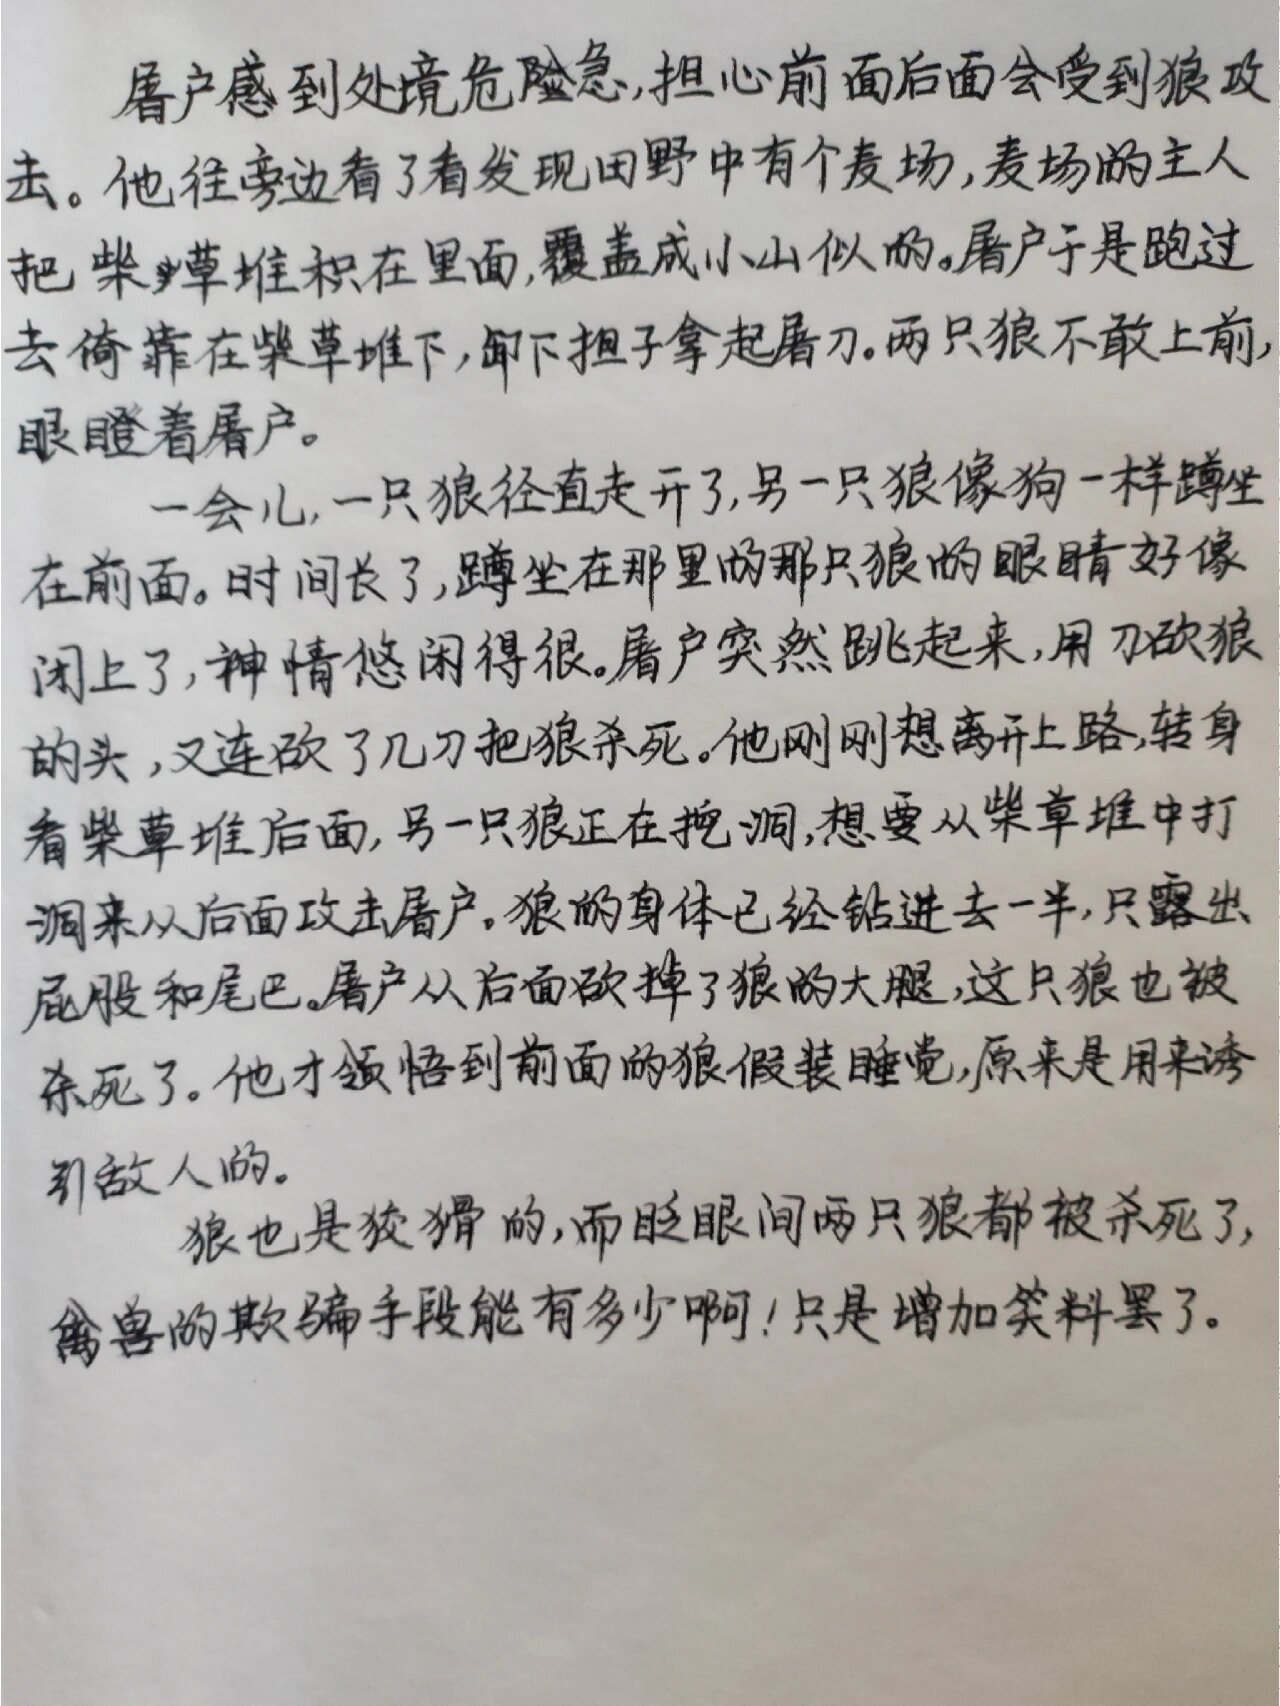 屠户感到处境危险急,担心前面后面会受到狼攻
击。他往旁边看了看发现田野中有个麦场,麦场的主人
把柴草堆积在里面,覆盖成小山似的。屠户于是跑过
去倚靠在柴草堆下,卸下担子拿起屠刀。两只狼不敢上前,
眼瞪着屠户。
一会儿,一只狼径直走开了,另一只狼像狗一样蹲坐
在前面。时间长了,蹲坐在那里的那只狼的眼睛好像
闭上了,神情悠闲得很。屠户突然跳起来,用刀砍狼
的头,又连砍了几刀把狼杀死。他刚刚想离开上路,转身
看柴草堆后面,另一只狼正在挖洞,想要从柴草堆中打
洞来从后面攻击屠户。狼的身体已经钻进去一半,只露出
屁股和尾巴。屠户从后面砍掉了狼的大腿,这只狼也被
杀死了。他才领悟到前面的狼假装睡觉,原来是用来诱
引敌人的。
狼也是狡猾的,而眨眼间两只狼都被杀死了,
禽兽的欺骗手段能有多少啊!只是增加笑料罢了。